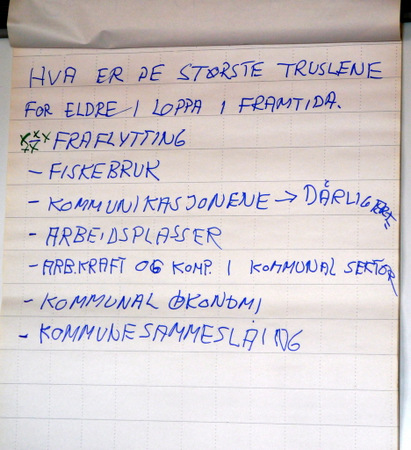 HVA ER DE STØRSTE TRUSLENE
FOR ELDRE I LOPPA I FRAMTIDA.
xxxxx FRAFLYTTING
- FISKEBRUK
- KOMMUNIKASJONENE → DÅRLIGERE
- ARBEIDSPLASSER
- ARB.KRAFT OG KOMP. I KOMMUNAL SEKTOR
- KOMMUNAL ØKONOMI
- KOMMUNESAMMESLÅING